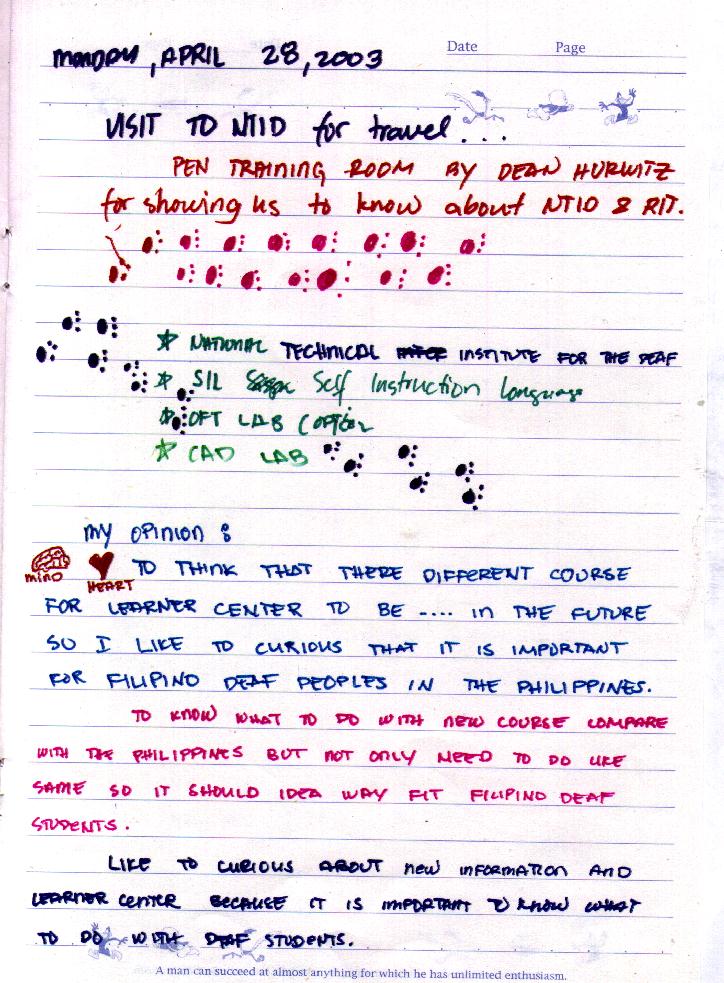 Date Page
MONDAY, APRIL 28, 2003
VISIT TO NTID for travel...
PEN TRAINING ROOM BY DEAN HURWITZ
for showing us to know about NTID & RIT.
NATIONAL TECHNICAL INSTITUTE FOR THE DEAF
SIL Self Instruction Language
OFT LAB (OPTION
CAD LAB
MY OPINION :
MIND HEART TO THINK THAT THERE DIFFERENT COURSE
FOR LEARNER CENTER TO BE .... IN THE FUTURE
SO I LIKE TO CURIOUS THAT IT IS IMPORTANT
FOR FILIPINO DEAF PEOPLES IN THE PHILIPPINES.
TO KNOW WHAT TO DO WITH NEW COURSE COMPARE
WITH THE PHILIPPINES BUT NOT ONLY NEED TO DO LIKE
SAME SO IT SHOULD IDEA WAY FIT FILIPINO DEAF
STUDENTS.
LIKE TO CURIOUS ABOUT NEW INFORMATION AND
LEARNER CENTER BECAUSE IT IS IMPORTANT TO KNOW WHAT
TO DO WITH DEAF STUDENTS.
A man can succeed at almost anything for which he has unlimited enthusiasm.